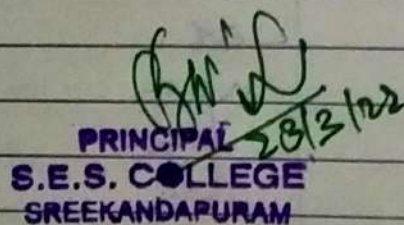 28/3/22
PRINCIPAL
S.E.S. COLLEGE
SREEKANDAPURAM